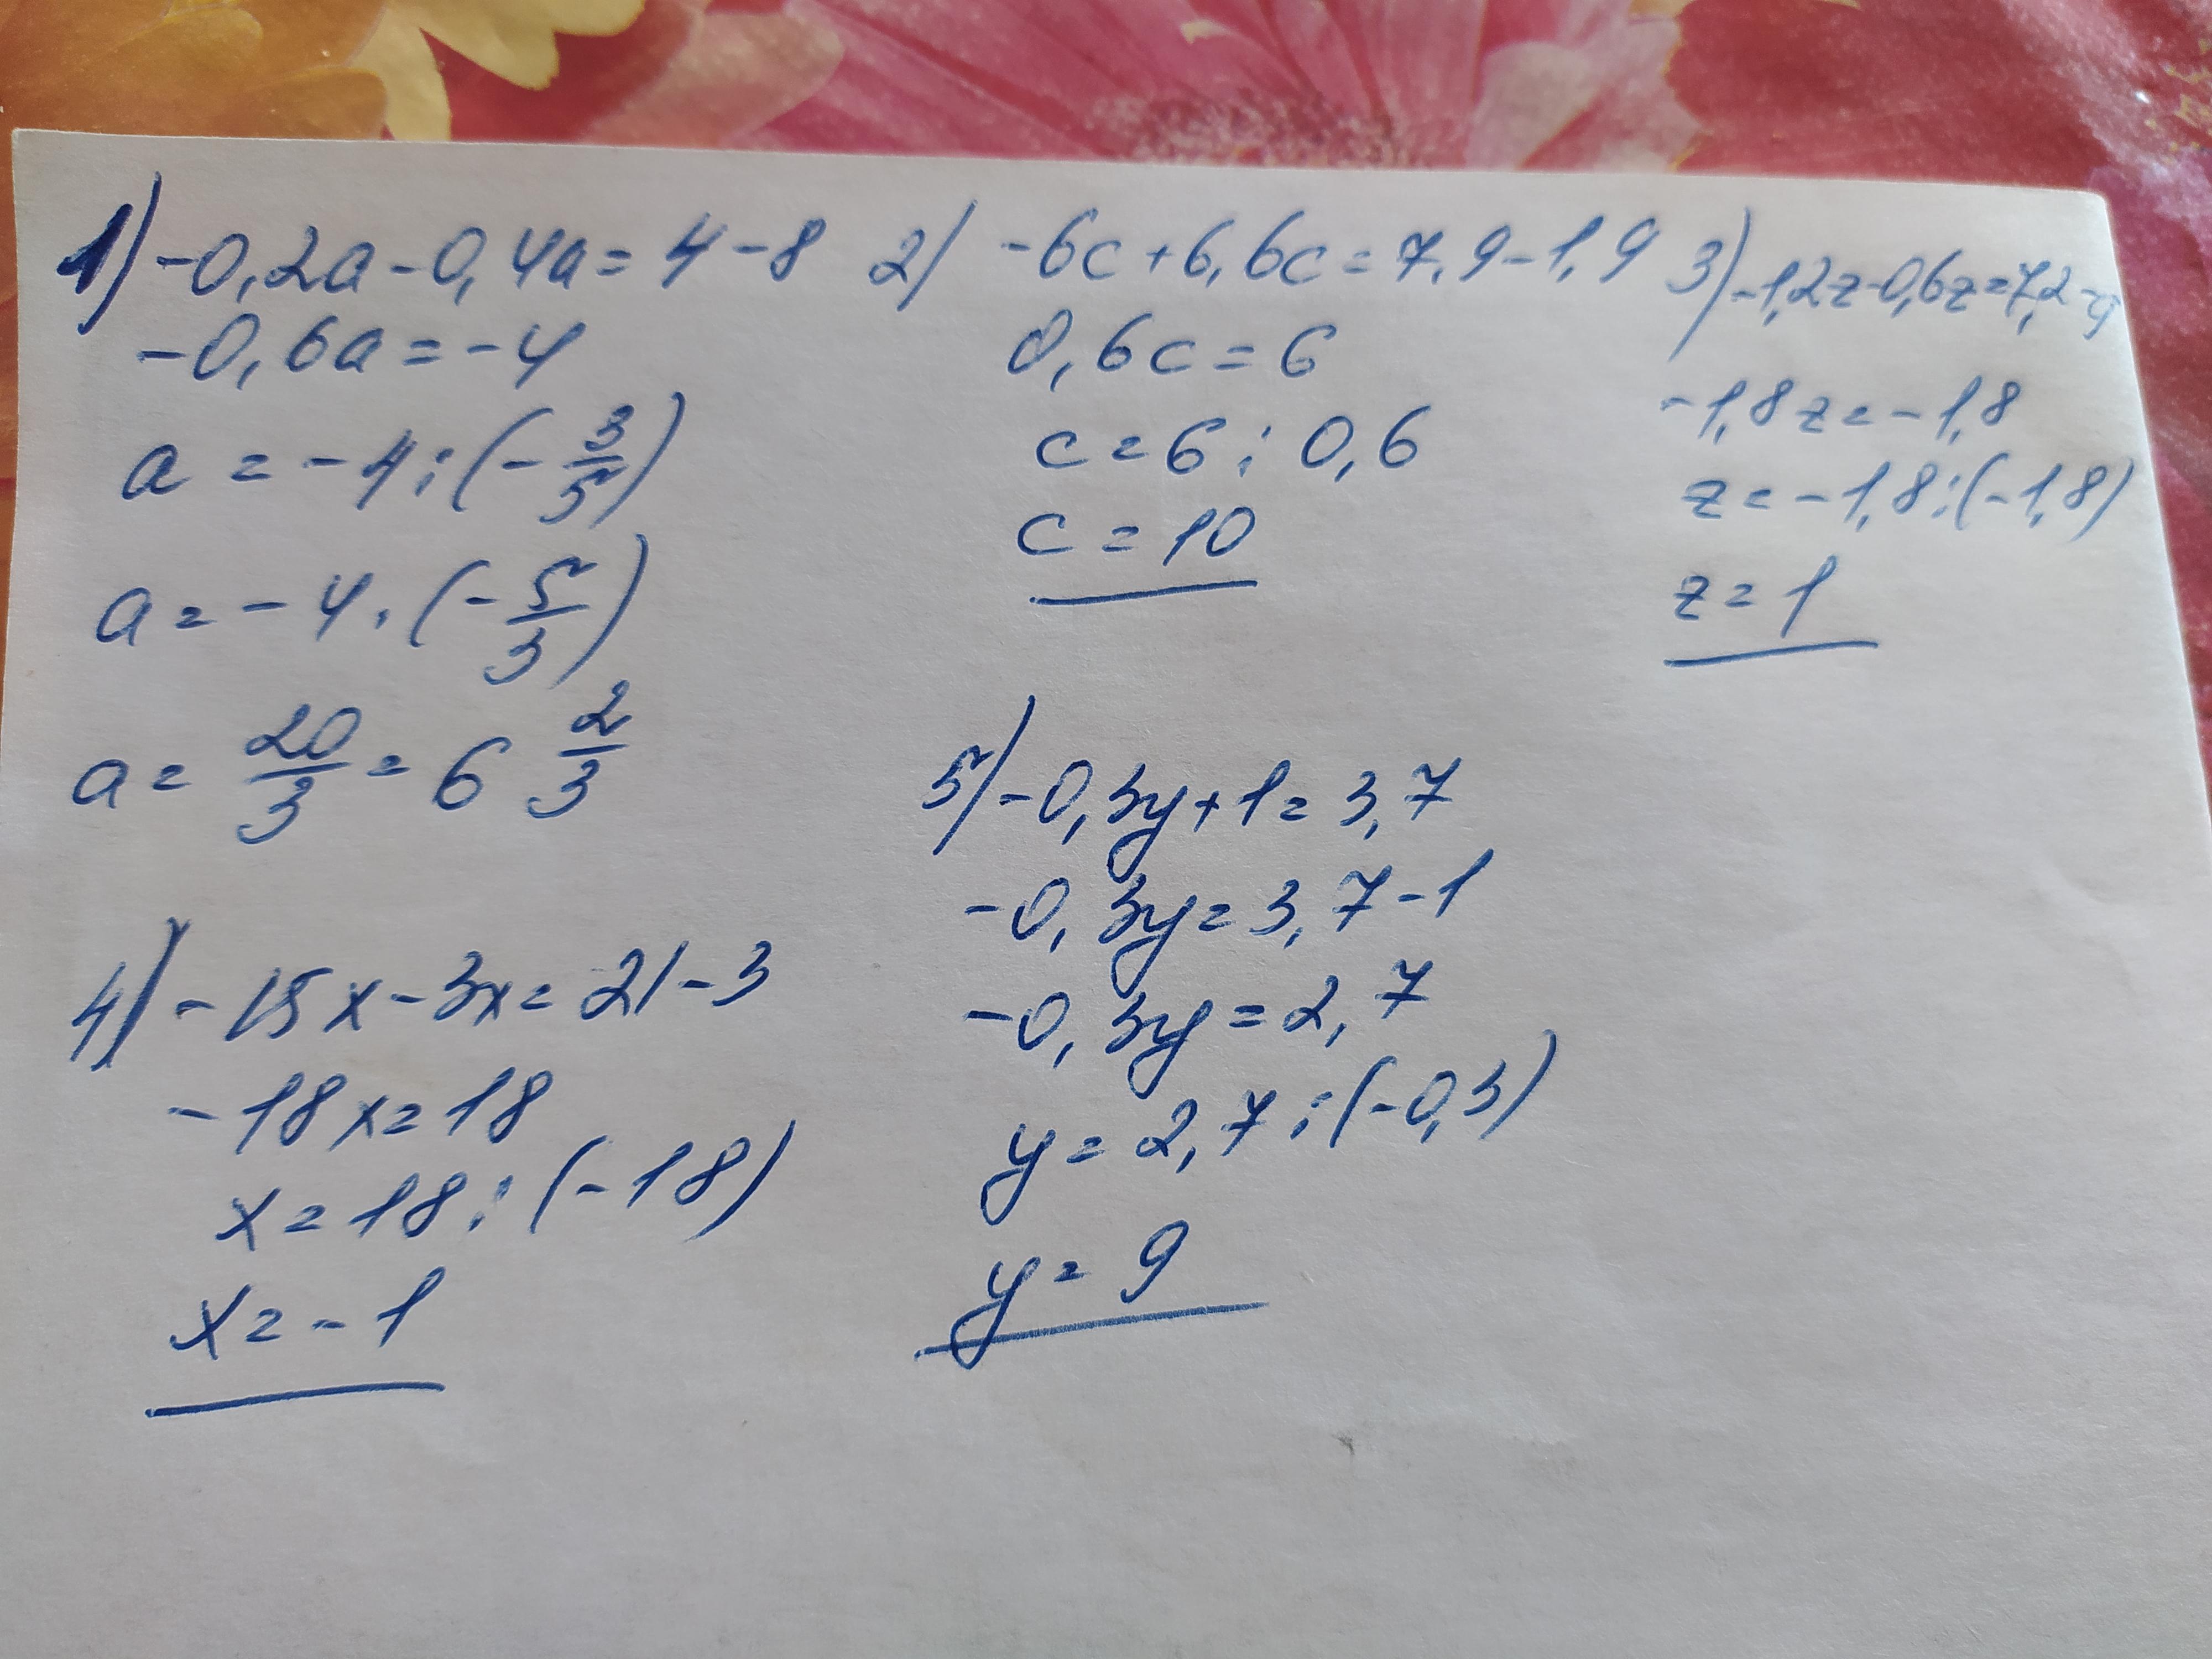 1) -0,2a-0,4a=4-8
-0,6a=-4
a=-4:(-3/5)
a=-4·(-5/3)
a=20/3=6 2/3
2) -6c+6,6c=7,9-1,9
0,6c=6
c=6:0,6
c=10
3) -1,2z-0,6z=7,2-9
-1,8z=-1,8
z=-1,8:(-1,8)
z=1
4) -15x-3x=21-3
-18x=18
x=18:(-18)
x=-1
5) -0,3y+1=3,7
-0,3y=3,7-1
-0,3y=2,7
y=2,7:(-0,3)
y=9